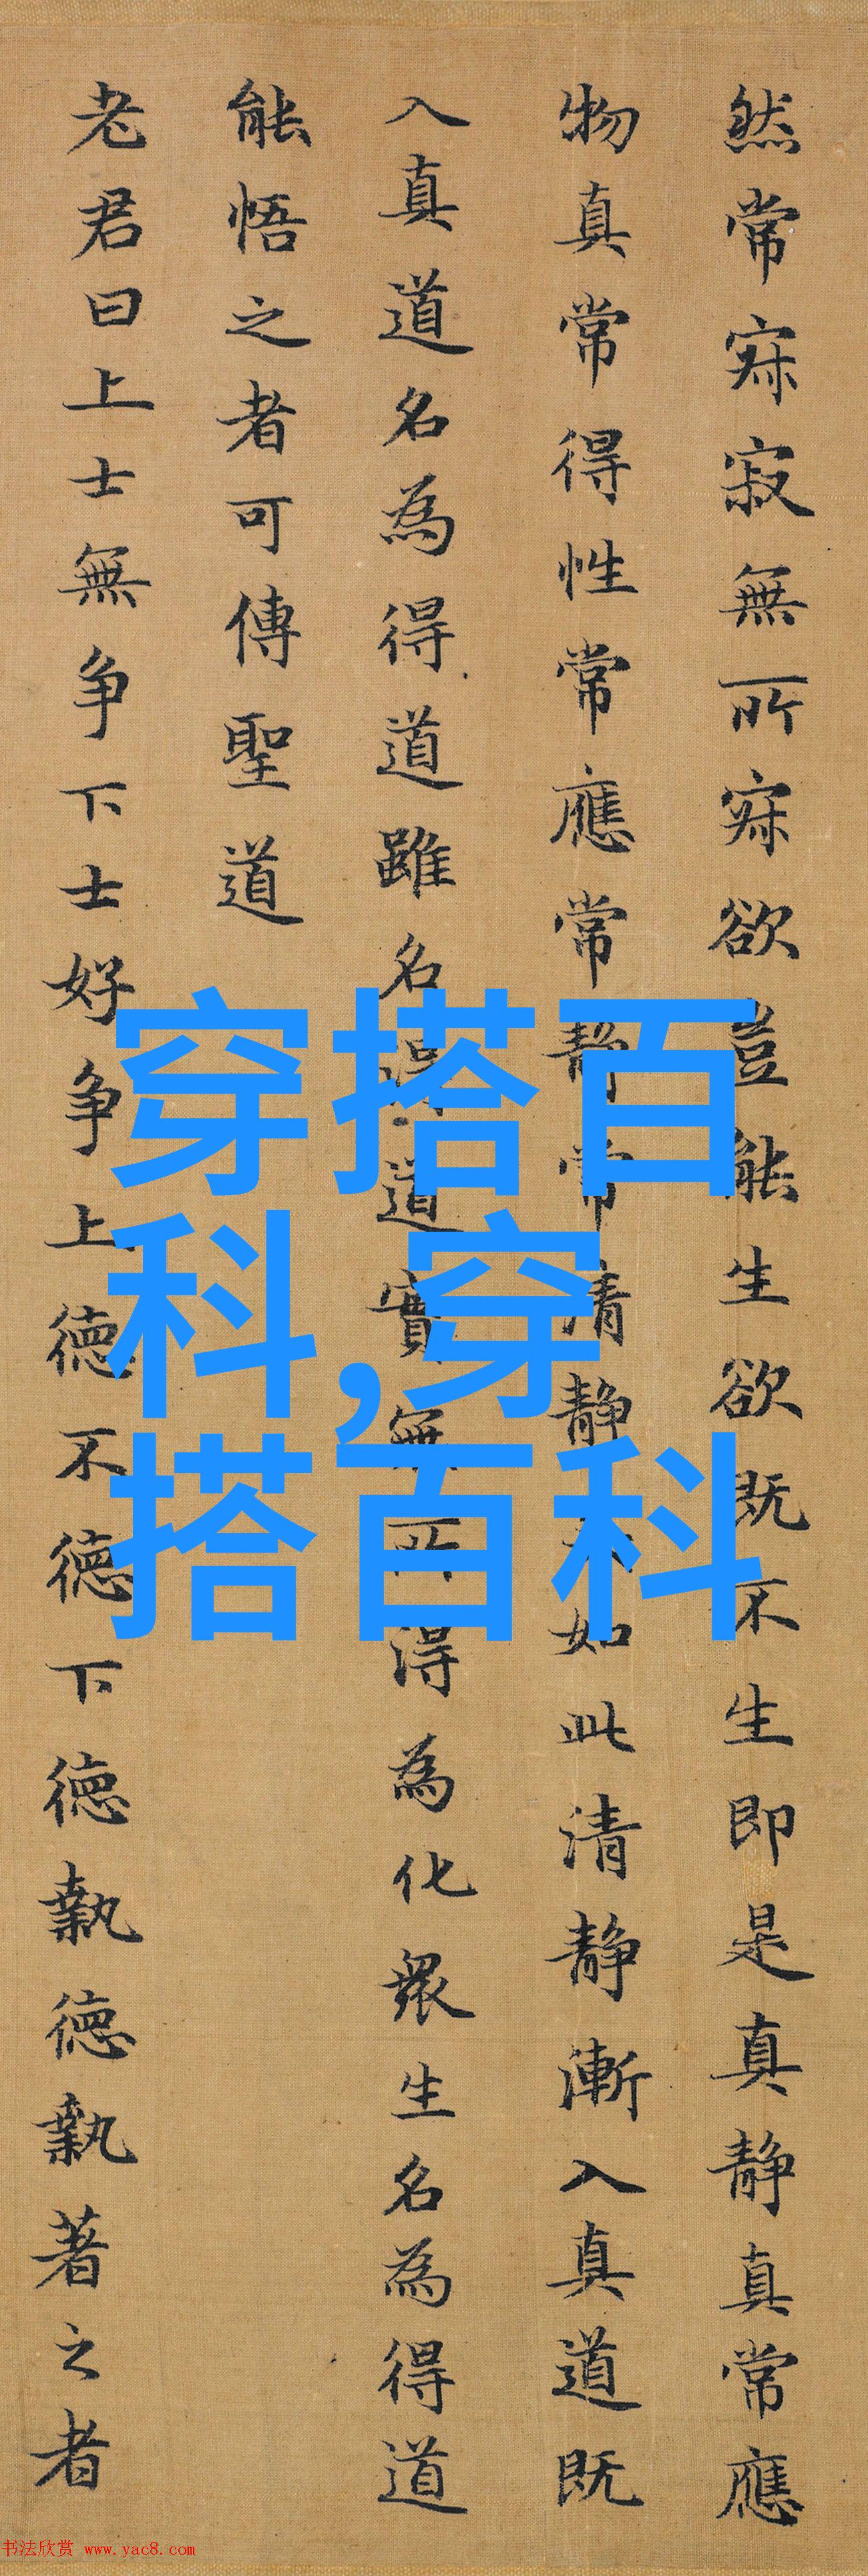 然常寂寂無所寂欲豈能生欲既不生即是真静真常應
物真常得性常應常静常清静矣如此清静漸入真道既
入真道名為得道雖名得道實無所得為化衆生名為得道
能悟之者可傳聖道
老君曰上士無争下士好争上德不德下德執德執著之者
穿搭百
科,穿
搭百科
书法欣赏 www.yac8.com